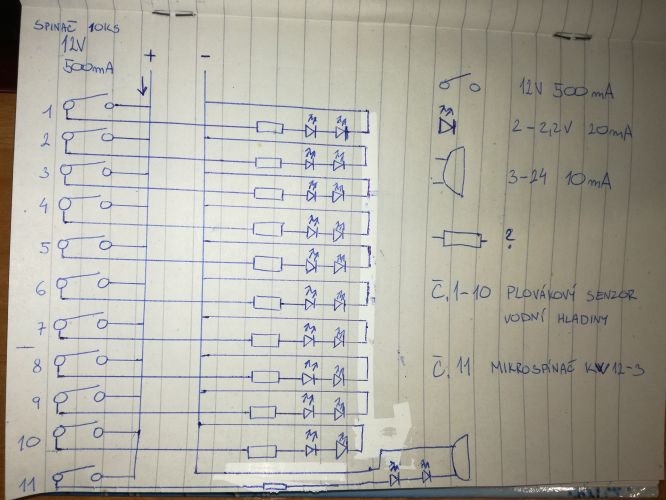 SPINAČ 10KS
12V
500mA
+ -
1
2
3
4
5
6
7
8
9
10
11
12V 500mA
2-2,2V 20mA
3-24 10mA
?
Č. 1-10 PLOVÁKOVÝ SENZOR
VODNÍ HLADINY
Č. 11 MIKROSPÍNAČ KW12-3